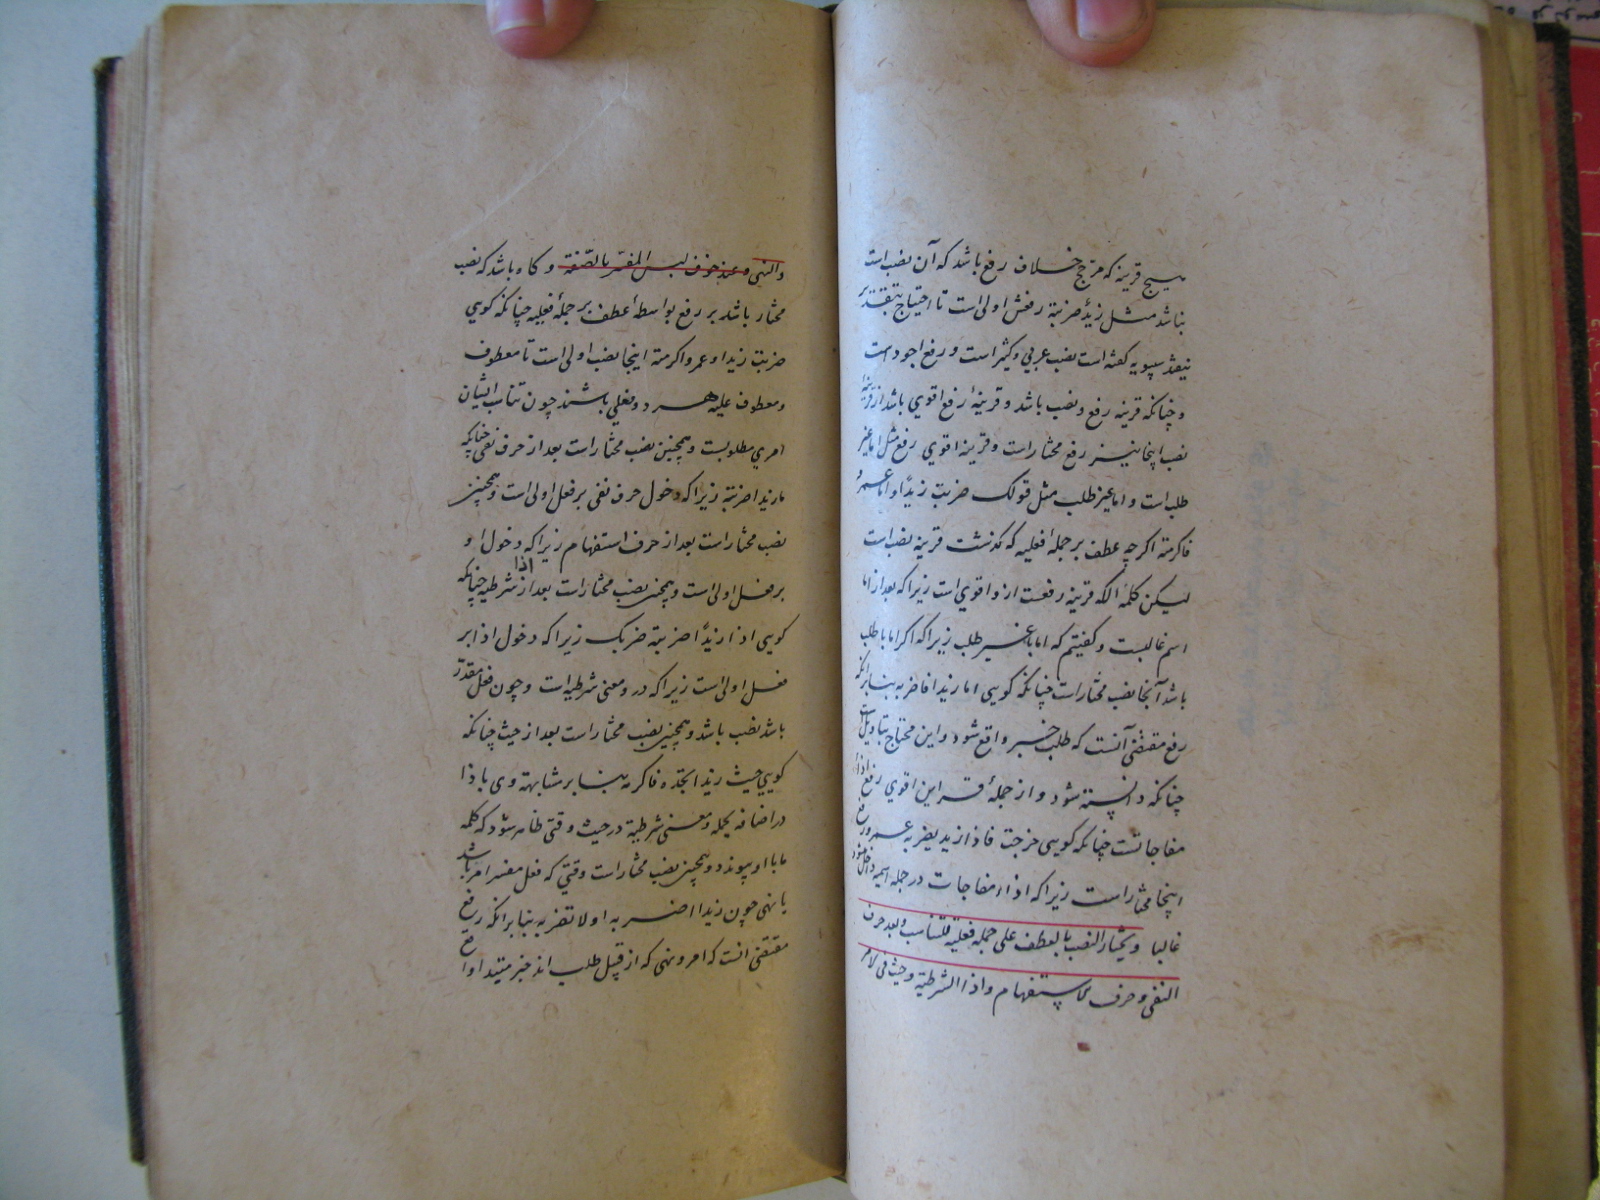 هیچ قرینه که مرجح خلاف رفع باشد که آن نصب است
نباشد مثل زیدٌ ضربته رفعش اولی است تا احتیاج بتقدیر
نیفتد سیبویه گفته است نصب عربی و کثیر است و رفع اجود است
و چنانکه قرینه رفع و نصب باشد و قرینهٔ رفع اقوی باشد از قرینهٔ
نصب اینجا نیز رفع مختار است و قرینه اقوی رفع مثل اما غیر
طلب است و اما غیر طلب مثل قولک ضربت زیدًا و اما عمرو
فاکرمته اگرچه عطف بر جملهٔ فعلیه که گذشت قرینه نصب است
لیکن کلمهٔ اما که قرینه رفعست ازو اقوی است زیرا که بعد از اما
اسم غالبست و گفتیم که اما با غیر طلب زیرا که اگر اما با طلب
باشد آنجا نصب مختار است چنانکه گویی اما زیدا فاضربه بنابر آنکه
رفع مقتضی آنست که طلب خبر واقع شود و این محتاج بتاویل است
چنانکه دانسته شود و از جملهٔ قراین اقوی رفع اذا
مفاجاتست چنانکه گویی خرجت فاذا زید یضربه عمرو رفع
اینجا مختار است زیرا که اذا مفاجات در جمله اسمیه داخل میشود
غالبا و یختار النصب بالعطف علی جملة فعلیة للتناسب و بعد حرف
النفی و حرف الاستفهام و اذا الشرطیة و حیث فی الامر
والنهی و عند خوف لبس المفسر بالصفة و گاه باشد که نصب
مختار باشد بر رفع بواسطهٔ عطف بر جملهٔ فعلیه چنانکه گویی
ضربت زیدا و عمروا اکرمته اینجا نصب اولی است تا معطوف
و معطوف علیه هر دو فعلی باشند چون تناسب ایشان
امری مطلوبست و همچنین نصب مختار است بعد از حرف نفی چنانکه
ما زیدا ضربته زیرا که دخول حرف نفی بر فعل اولی است و همچنین
نصب مختار است بعد از حرف استفهام زیرا که دخول او
بر فعل اولی است و همچنین نصب مختار است بعد از اذا شرطیه چنانکه
گویی اذا زیدًا ضربته ضربک زیرا که دخول اذا بر
فعل اولی است زیرا که درو معنی شرطیه است و چون فعل مقدر
باشد نصب باشد و همچنین نصب مختار است بعد از حیث چنانکه
گویی حیث زیدا تجده فاکرمه بنابر مشابهته وی باذا
در اضافه بجمله و معنی شرطیة در حیث وقتی ظاهر شود که کلمه
ما با او پیوندد و همچنین نصب مختار است وقتی که فعل مفسر امر باشد
یا نهی چون زیدا اضربه او لا تضربه بنابر آنکه رفع
مقتضی آنست که امر و نهی که از قبیل طلب اند خبر مبتدا واقع